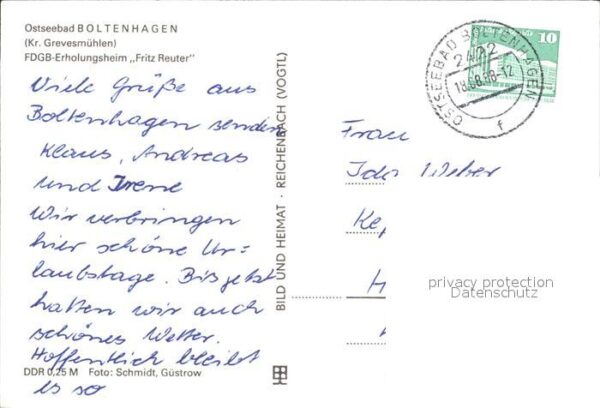 Ostseebad BOLTENHAGEN
(Kr. Grevesmühlen)
FDGB-Erholungsheim „Fritz Reuter"
Viele Grüße aus
Boltenhagen senden
Klaus, Andreas
und Irene
Wir verbringen
hier schöne Ur-
laubstage. Bis jetzt
hatten wir auch
schönes Wetter.
Hoffentlich bleibt
es so
DDR 0,25 M Foto: Schmidt, Güstrow
BILD UND HEIMAT · REICHENBACH (VOGTL)
10
OSTSEEBAD BOLTENHAGEN
2422
18.08.88-12
f
Frau
Ida Weber
privacy protection
Datenschutz